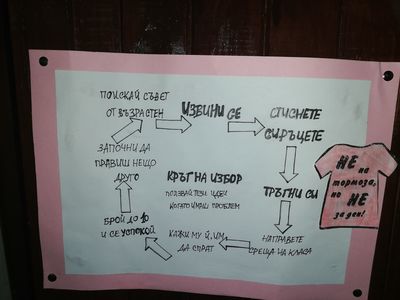 ПОИСКАЙ СЪВЕТ
ОТ ВЪЗРАСТЕН
ИЗВИНИ СЕ
СТИСНЕТЕ
СИ РЪЦЕТЕ
ЗАПОЧНИ ДА
ПРАВИШ НЕЩО
ДРУГО
КРЪГ НА ИЗБОР
ПОЛЗВАЙ ТЕЗИ ИДЕИ
КОГАТО ИМАШ ПРОБЛЕМ
ТРЪГНИ СИ
БРОЙ ДО 10
И СЕ УСПОКОЙ
КАЖИ МУ Й, ИМ
ДА СПРАТ
НАПРАВЕТЕ
СРЕЩА НА КЛАСА
НЕ на
тормоза,
но НЕ
за ден!